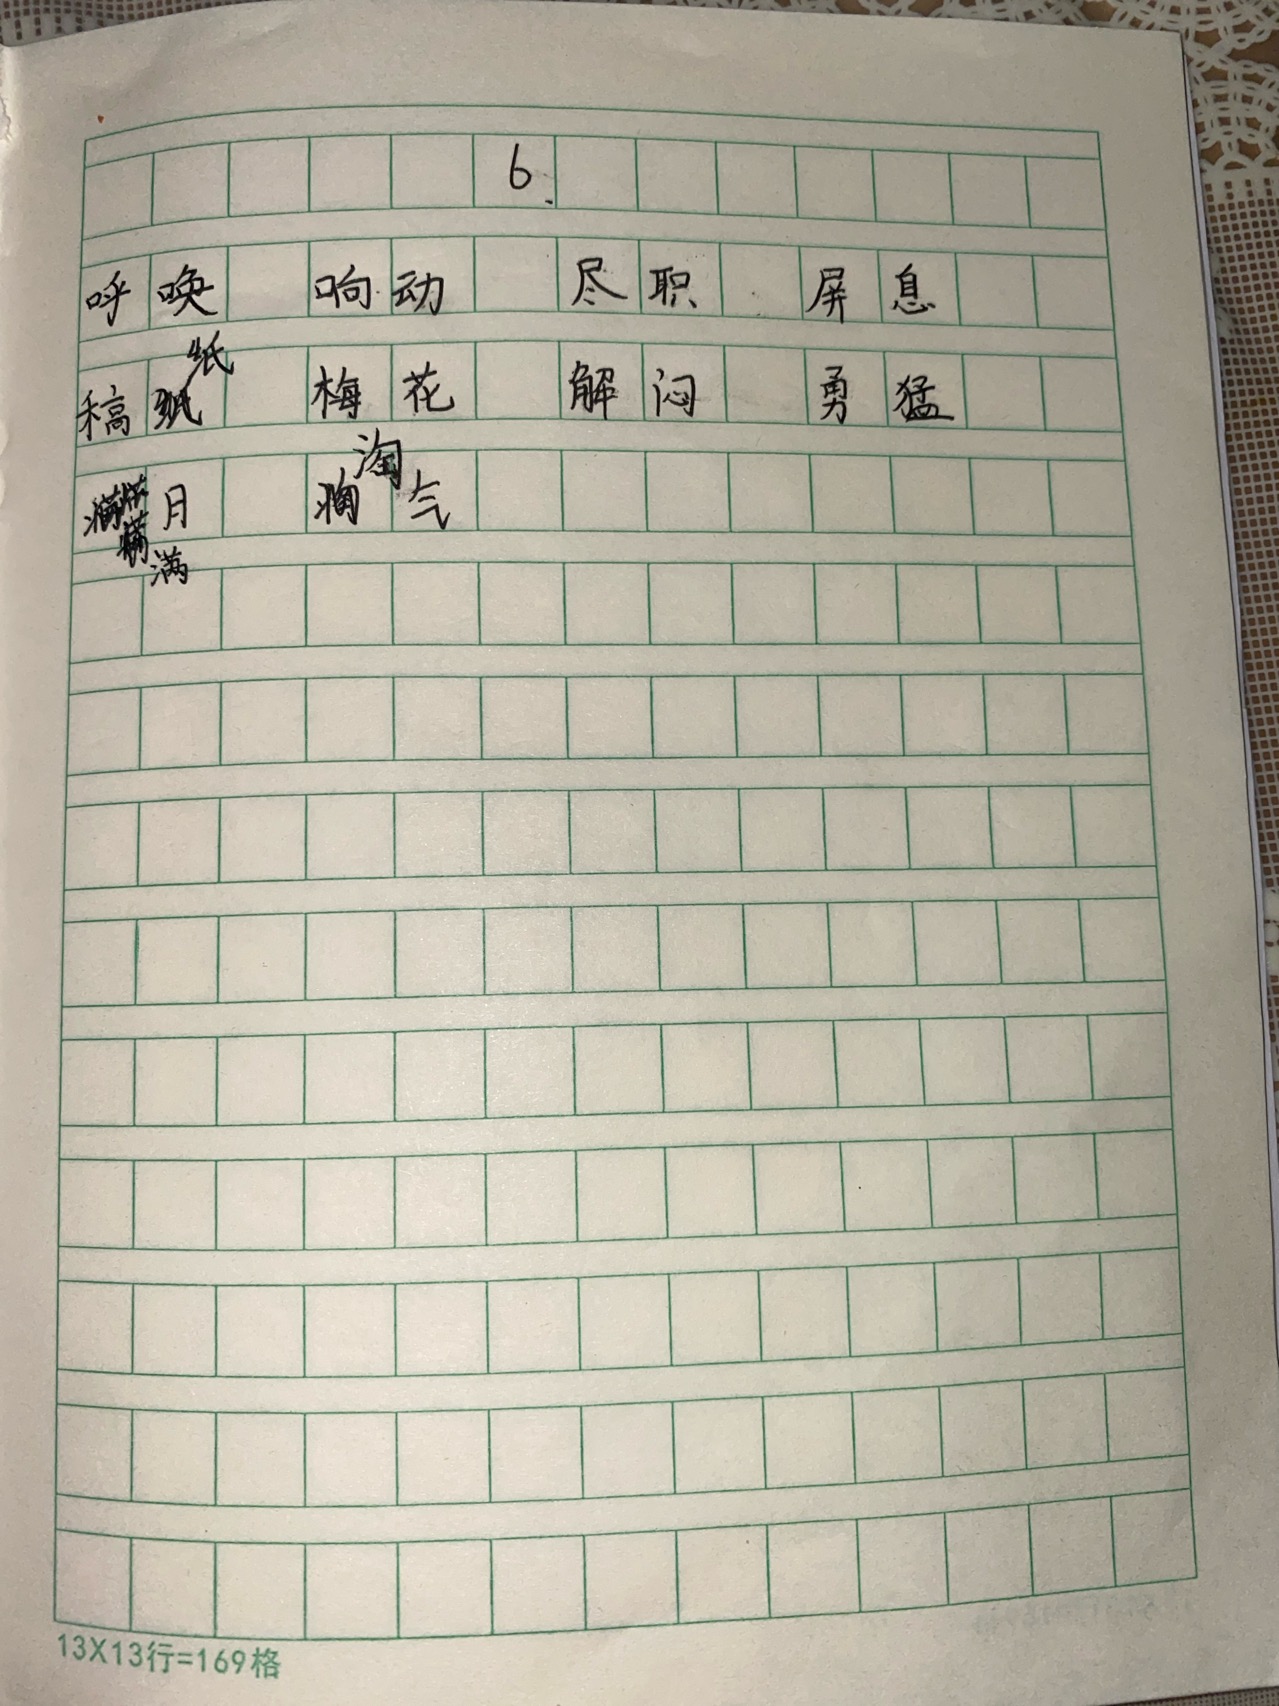 6
呼唤 响动 尽职 屏息
稿纸 梅花 解闷 勇猛
满月 淘气
13X13行=169格